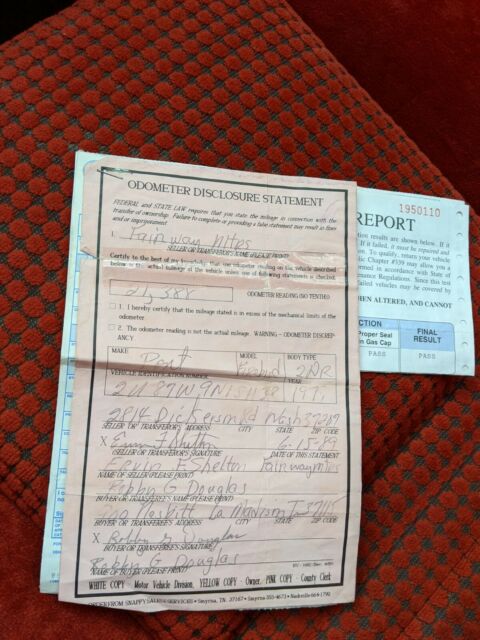 ODOMETER DISCLOSURE STATEMENT
FEDERAL and STATE LAW requires that you state the mileage in connection with the
transfer of ownership. Failure to complete or providing a false statement may result in fines
and/or imprisonment
I, Fairway Mtrs
SELLER OR TRANSFEROR'S NAME (PLEASE PRINT)
Certify to the best of my knowledge that the odometer reading on the vehicle described
below is the actual mileage of the vehicle unless one of following statements is checked.
ODOMETER READING (NO TENTHS)
1. I hereby certify that the mileage stated is in excess of the mechanical limits of the
odometer.
2. The odometer reading is not the actual mileage. WARNING - ODOMETER DISCREP-
ANCY
MAKE MODEL BODY TYPE
Pont Firebird 2DR
VEHICLE IDENTIFICATION NUMBER
2814 Dickerson Rd Nash 37207
SELLER OR TRANSFEROR'S ADDRESS CITY STATE ZIP CODE
X Ervin F Shelton 6-15-89
SELLER OR TRANSFEROR'S SIGNATURE DATE OF THIS STATEMENT
Ervin F Shelton Fairway Mtrs
NAME OF SELLER (PLEASE PRINT)
Bobby G Douglas
BUYER OR TRANSFEREE'S NAME (PLEASE PRINT)
Neskitt La Madison Tn 37115
BUYER OR TRANSFEREE'S ADDRESS CITY STATE ZIP CODE
X Bobby G Douglas
BUYER OR TRANSFEREE'S SIGNATURE
Bobby G Douglas
NAME OF BUYER (PLEASE PRINT)
WHITE COPY - Motor Vehicle Division, YELLOW COPY - Owner, PINK COPY - County Clerk
ORDER FROM SNAPPY SALES & SERVICES • Smyrna, TN. 37167 • Smyrna 355-4673 • Nashville 664-1792
1950110
REPORT
tion results are shown below. If it
If failed, it must be repaired and
on. To qualify, return your vehicle
lic Chapter #539 may allow you a
formed in accordance with State of
enance Regulations. Since this test
failed vehicles may be covered by
HEN ALTERED, AND CANNOT
CTION
Proper Seal
n Gas Cap
FINAL
RESULT
PASS PASS